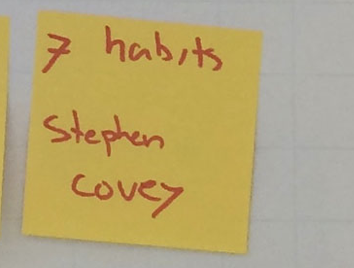 7 habits
Stephen
Covey